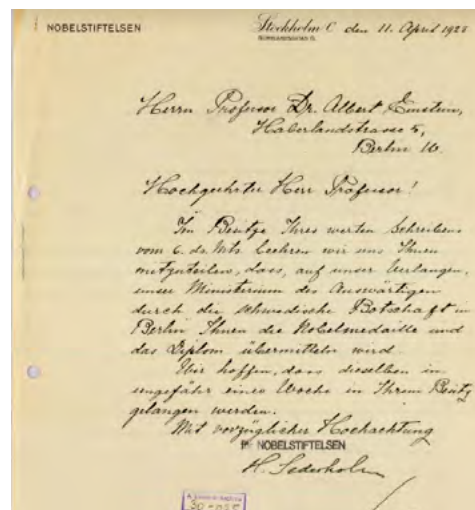 NOBELSTIFTELSEN
Stockholm C. den 11. April 1923
Herrn Professor Dr. Albert Einstein,
Haberlandstrasse 5,
Berlin W.
Hochgeehrter Herr Professor!
Im Besitze Ihres werten Schreibens
vom 6. ds. Mts. beehren wir uns Ihnen
mitzuteilen, dass, auf unser Verlangen,
unser Ministerium des Auswärtigen
durch die schwedische Botschaft in
Berlin Ihnen die Nobelmedaille und
das Diplom übermitteln wird
Wir hoffen, dass dieselben in
ungefähr einer Woche in Ihrem Besitz
gelangen werden.
Mit vorzüglicher Hochachtung
NOBELSTIFTELSEN
H. Sederholm